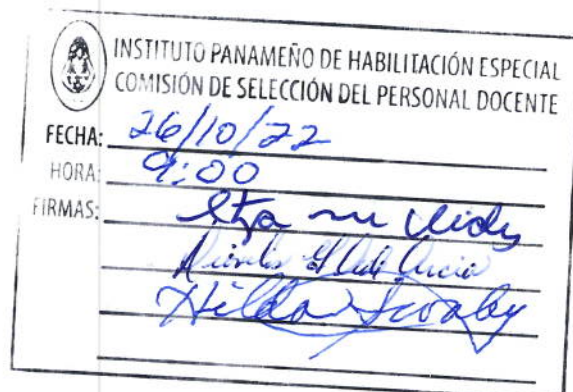 INSTITUTO PANAMEÑO DE HABILITACIÓN ESPECIAL
COMISIÓN DE SELECCIÓN DEL PERSONAL DOCENTE
FECHA: 26/10/22
HORA: 9:00
FIRMAS:
Hilda Swaby